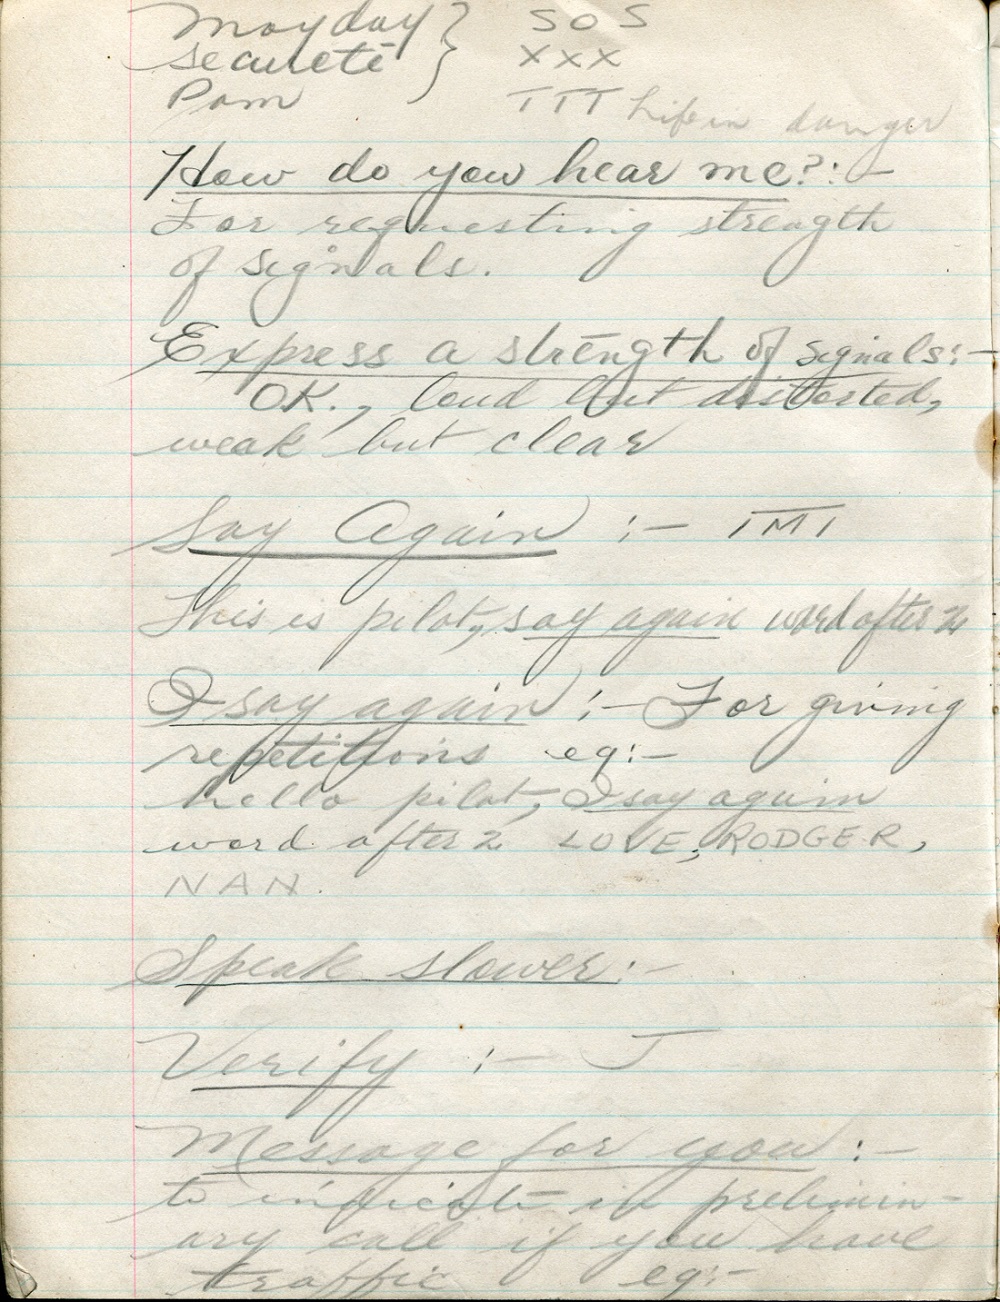 Mayday } SOS
securete XXX
Pam TTT Life in danger
How do you hear me?:-
For requesting strength
of signals.
Express a strength of signals:-
OK., loud but distorted,
weak but clear
Say Again :- IMI
This is pilot, say again word after 2
I say again :- For giving
repetitions eg:-
hello pilot, I say again
word after 2 LOVE, RODGER,
NAN.
Speak slower:-
Verify :- J
Message for you :-
to indicate in prelimin-
ary call if you have
traffic eg:-